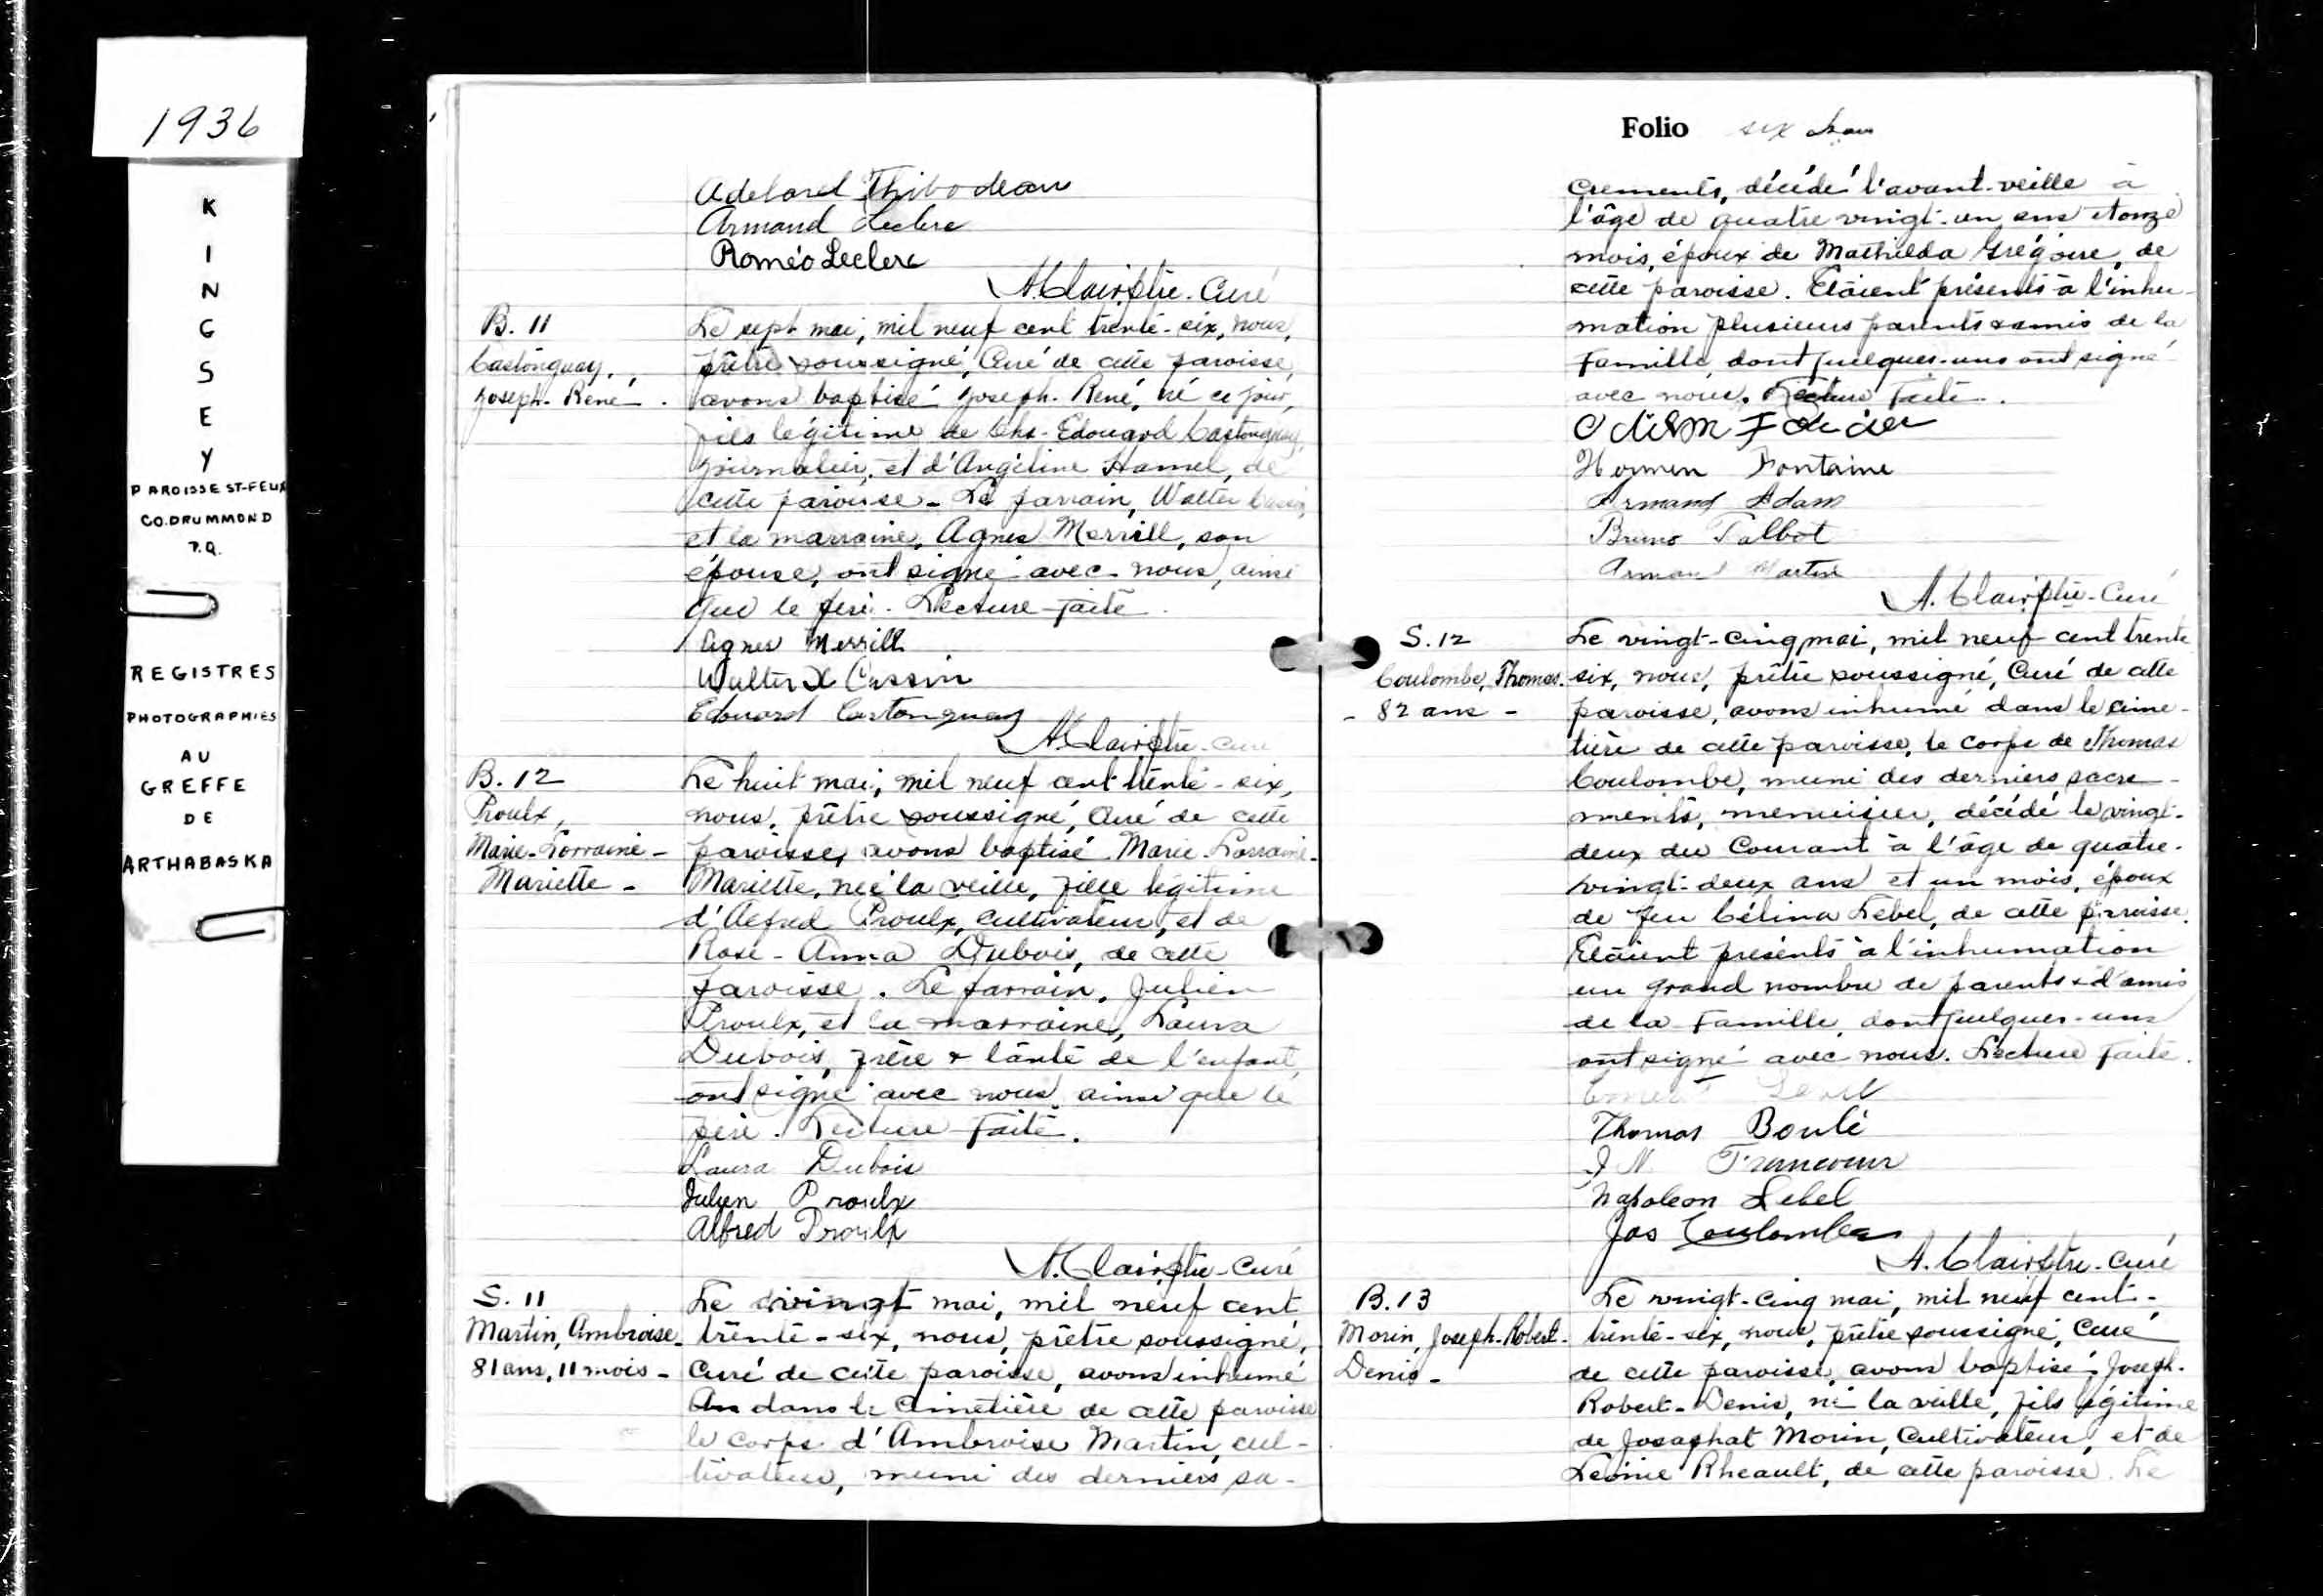 1936
K
I
N
G
S
E
Y
PAROISSE ST-FELIX
CO. DRUMMOND
P.Q.
REGISTRES
PHOTOGRAPHIES
AU
GREFFE
DE
ARTHABASKA
Adelard Thibodeau
Armand Leclerc
Roméo Leclerc
A. Clair, ptre. Curé
B. 11
Castonguay,
Joseph-René.
Le sept mai, mil neuf cent trente-six, nous,
prêtre soussigné, Curé de cette paroisse,
avons baptisé Joseph-René, né ce jour,
fils légitime de Chs-Edouard Castonguay,
journalier, et d'Angéline Hamel, de
cette paroisse - Le parrain, Walter
et la marraine, Agnes Merrill, son
épouse, ont signé avec nous, ainsi
que le père. Lecture faite.
Agnes Merrill
Walter Cassin
Edouard Castonguay
A. Clair, ptre - curé
B. 12
Proulx,
Marie-Lorraine-
Mariette -
Le huit mai, mil neuf cent trente-six,
nous, prêtre soussigné, Curé de cette
paroisse, avons baptisé Marie-Lorraine-
Mariette, née la veille, fille légitime
d'Alfred Proulx, cultivateur, et de
Rose-Anna Dubois, de cette
paroisse. Le parrain, Julien
Proulx, et la marraine, Laura
Dubois, frère & tante de l'enfant,
ont signé avec nous ainsi que le
père. Lecture faite.
Laura Dubois
Julien Proulx
Alfred Proulx
A. Clair, ptre - curé
S. 11
Martin, Ambroise-
81 ans, 11 mois -
Le vingt mai, mil neuf cent
trente-six, nous, prêtre soussigné,
Curé de cette paroisse, avons inhumé
An dans le cimetière de cette paroisse
le corps d'Ambroise Martin, cul-
tivateur, muni des derniers sa-
Folio six
crements, décédé l'avant-veille à
l'âge de quatre vingt-un ans et onze
mois, époux de Mathilda Grégoire, de
cette paroisse. Etaient présents à l'inhu-
mation plusieurs parents & amis de la
famille, dont quelques-uns ont signé
avec nous. Lecture faite.
Hermen Fontaine
Armand Adam
Bruno Talbot
Armand Martin
A. Clair, ptre - Curé
S. 12
Coulombe, Thomas.
- 82 ans -
Le vingt-cinq mai, mil neuf cent trente
six, nous, prêtre soussigné, Curé de cette
paroisse, avons inhumé dans le cime-
tière de cette paroisse, le corps de Thomas
Coulombe, muni des derniers sacre-
ments, menuisier, décédé le vingt-
deux du courant à l'âge de quatre-
vingt-deux ans et un mois, époux
de feu Célina Lebel, de cette paroisse.
Etaient présents à l'inhumation
un grand nombre de parents & d'amis
de la famille, dont quelques-uns
ont signé avec nous. Lecture faite.
Thomas Boulé
J N. Francoeur
Napoleon Lebel
Jos Coulombe
A. Clair, ptre - curé
B. 13
Morin, Joseph-Robert-
Denis -
Le vingt-cinq mai, mil neuf cent-
trente-six, nous, prêtre soussigné, Curé
de cette paroisse, avons baptisé Joseph-
Robert-Denis, né la veille, fils légitime
de Josaphat Morin, cultivateur, et de
Léonie Rheault, de cette paroisse. Le